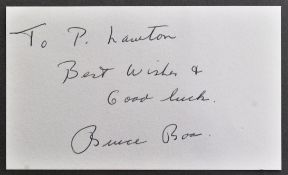 To P. Lawton
Best Wishes &
Good luck.
Bruce Boa.